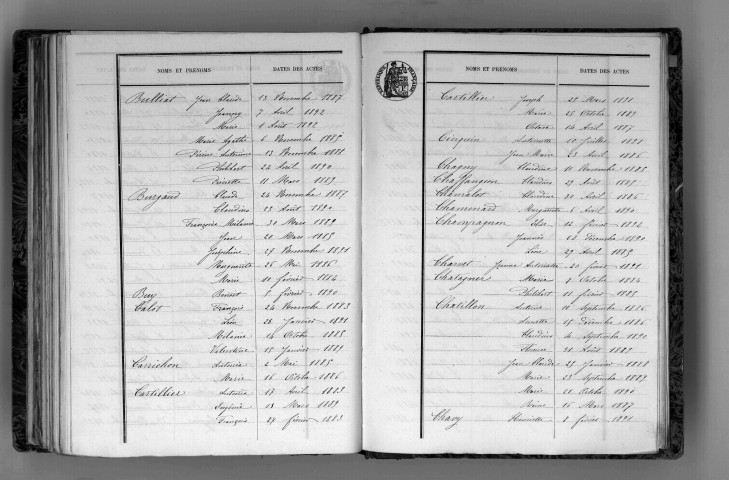 NOMS ET PRÉNOMS DATES DES ACTES
Brilliat Jean Claude 13 Novembre 1887
7 Avril 1892
Marie 1 Août 1892
Marie Agathe 6 Novembre 1885
Pierre Antoine 13 Novembre 1888
Philibert 22 Avril 1890
Pierrette 11 Mars 1889
Burgaud Claude 26 Novembre 1887
Claudius 13 Août 1890
Françoise Melanie 30 Mars 1889
Jean 20 Mars 1885
Joséphine 29 Novembre 1891
Marguerite 26 Mai 1886
Marie 10 février 1884
Buy Benoit 5 février 1890
Calot François 24 Novembre 1883
Léon 28 Janvier 1891
Melanie 14 Octobre 1885
Valentine 15 Janvier 1889
Carrichon Antonia 2 Mai 1885
Marie 16 Octobre 1886
Cartillier Antonia 17 Avril 1883
Eugénie 18 Mars 1889
François 24 février 1883
NOMS ET PRÉNOMS DATES DES ACTES
RÉPUBLIQUE FRANÇAISE
Cartillier Joseph 28 Mars 1891
Marie 25 Octobre 1889
14 Avril 1887
Cinquin Antoinette 10 Juillet 1891
Jean Marie 23 Avril 1886
Chagny Claudine 10 Novembre 1885
Chaffangeon Claudius 29 Août 1885
Chamalot Claudine 30 Avril 1886
Chaminard Marguerite 6 Avril 1890
Champagnon Elise 12 février 1892
Jeannie 22 Décembre 1890
Léon 29 Avril 1889
Charnet Jeanne Antoinette 20 février 1891
Chatagner Marie 9 Octobre 1884
Philibert 11 février 1885
Chatillon Antoine 10 Septembre 1886
Annette 15 Décembre 1886
Claudius 14 Septembre 1890
21 Août 1889
Jean Claude 27 Janvier 1888
Marie 23 Septembre 1887
Marie 20 Octobre 1890
15 Mars 1887
Chavy Henriette 2 février 1891